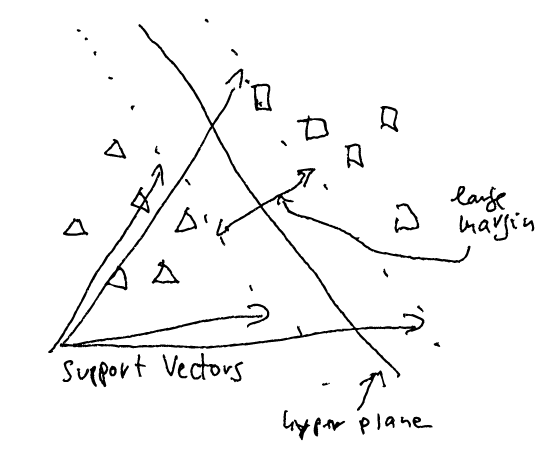 large
margin
Support Vectors
hyper plane